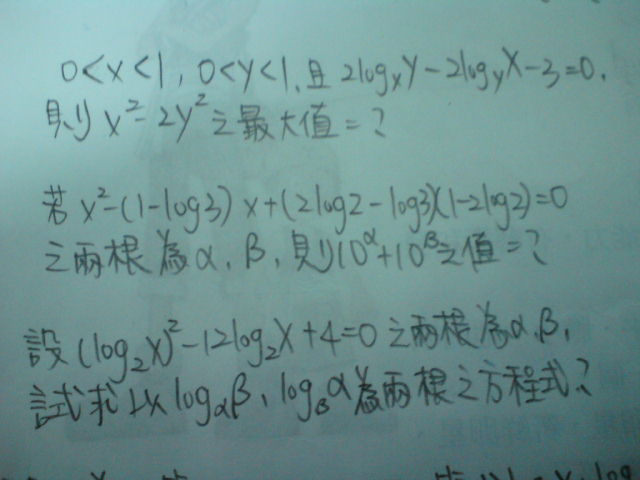 0<x<1, 0<y<1, 且 2logₓy-2logᵧx-3=0,
則 x²-2y² 之最大值=?
若 x²-(1-log3)x+(2log2-log3)(1-2log2)=0
之兩根為α、β, 則10^α+10^β之值=?
設(log₂x)²-12log₂x+4=0 之兩根為α、β,
試求以 log_αβ、log_βα 為兩根之方程式?